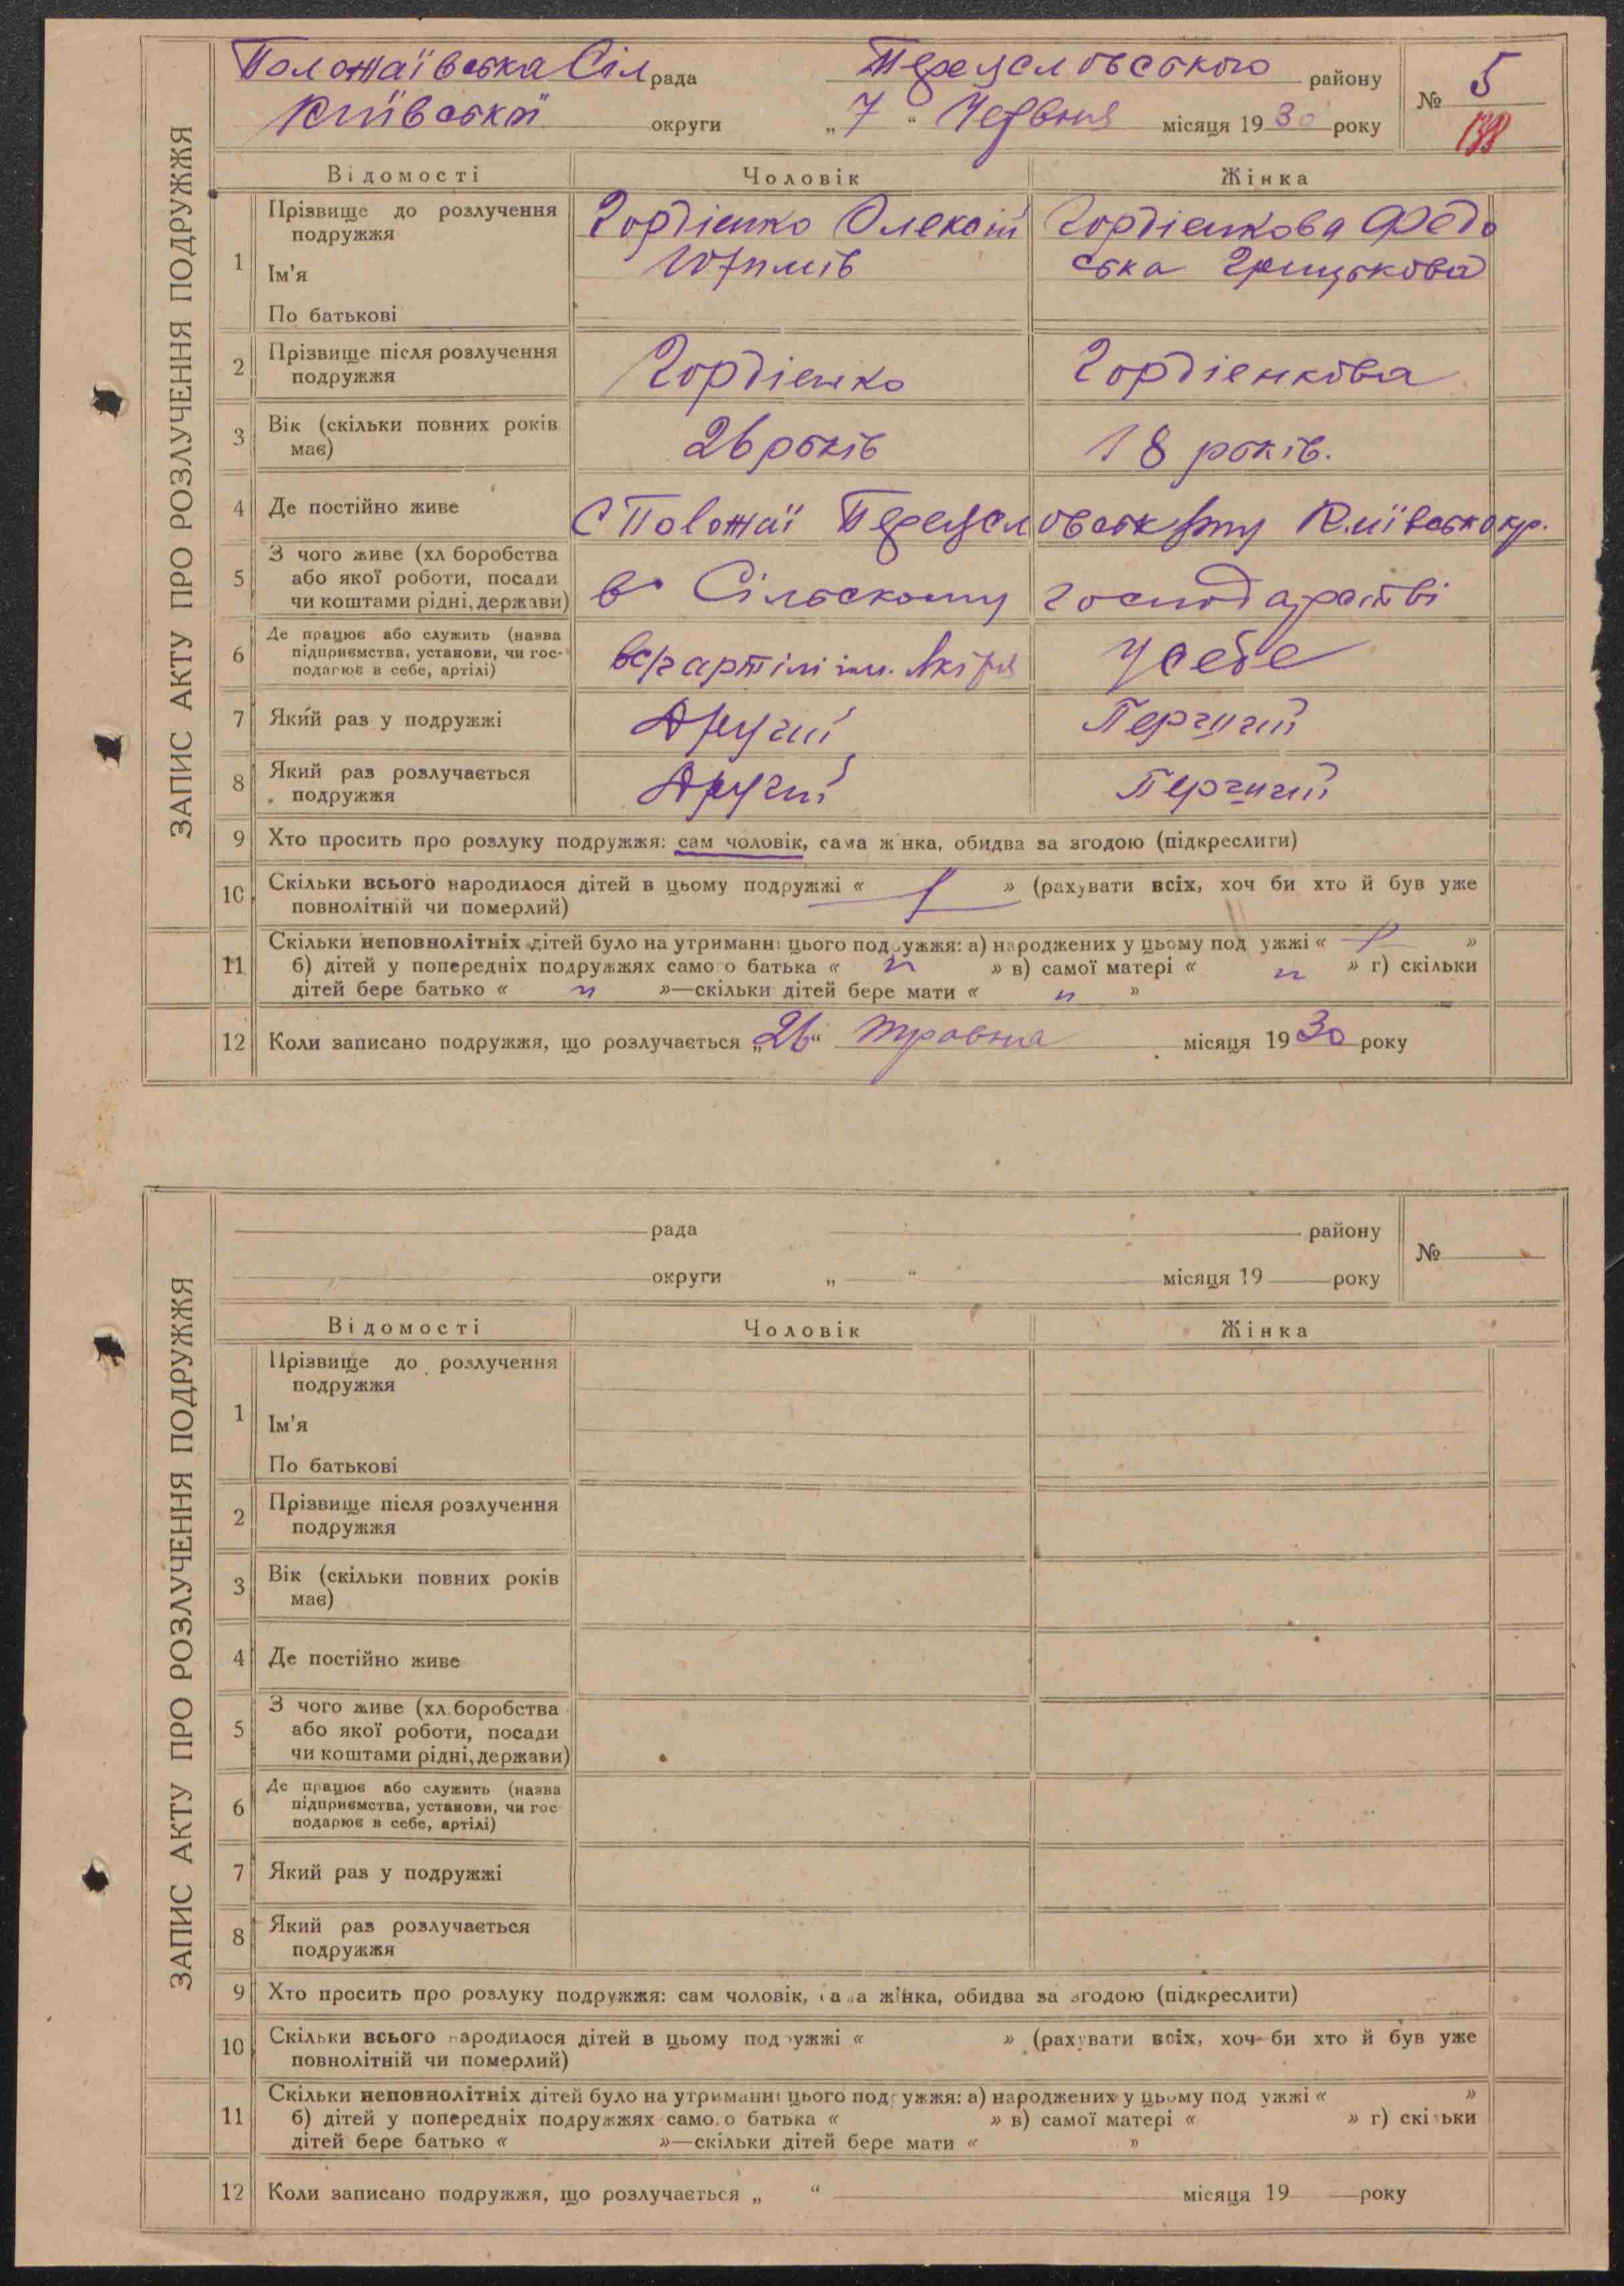 ЗАПИС АКТУ ПРО РОЗЛУЧЕННЯ ПОДРУЖЖЯ
Положаївська Сіл рада Переяславського району № 5
Київської округи „7“ Червня місяця 1930 року
Відомості Чоловік Жінка
1 Прізвище до розлучення подружжя Гордієнко Олексій Гордієнкова Федо
Ім'я ська Грицькова
По батькові
2 Прізвище після розлучення подружжя Гордієнко Гордієнкова
3 Вік (скільки повних років має) 26 років 18 років.
4 Де постійно живе С Положаї Київськ окр.
5 З чого живе (хл боробства
або якої роботи, посади
чи коштами рідні, держави) в Сільскому господарстві
6 Де працює або служить (назва
підприємства, установи, чи гос-
подарює в себе, артілі) в с/г артілі ім. У себе
7 Який раз у подружжі Другий Перший
8 Який раз розлучається подружжя Другий Перший
9 Хто просить про розлуку подружжя: сам чоловік, сама жінка, обидва за згодою (підкреслити)
10 Скільки всього народилося дітей в цьому подружжі « » (рахувати всіх, хоч би хто й був уже
повнолітній чи померлий)
11 Скільки неповнолітніх дітей було на утриманні цього подружжя: а) народжених у цьому подружжі « »
б) дітей у попередніх подружжях самого батька « „ » в) самої матері « „ » г) скільки
дітей бере батько « „ »—скільки дітей бере мати « „ »
12 Коли записано подружжя, що розлучається „26“ травня місяця 1930 року
ЗАПИС АКТУ ПРО РОЗЛУЧЕННЯ ПОДРУЖЖЯ
рада району №
округи „ “ місяця 19 року
Відомості Чоловік Жінка
1 Прізвище до розлучення
подружжя
Ім'я
По батькові
2 Прізвище після розлучення
подружжя
3 Вік (скільки повних років
має)
4 Де постійно живе
5 З чого живе (хл боробства
або якої роботи, посади
чи коштами рідні, держави)
6 Де працює або служить (назва
підприємства, установи, чи гос-
подарює в себе, артілі)
7 Який раз у подружжі
8 Який раз розлучається
подружжя
9 Хто просить про розлуку подружжя: сам чоловік, сама жінка, обидва за згодою (підкреслити)
10 Скільки всього народилося дітей в цьому подружжі « » (рахувати всіх, хоч би хто й був уже
повнолітній чи померлий)
11 Скільки неповнолітніх дітей було на утриманні цього подружжя: а) народжених у цьому подружжі « »
б) дітей у попередніх подружжях самого батька « » в) самої матері « » г) скільки
дітей бере батько « »—скільки дітей бере мати « »
12 Коли записано подружжя, що розлучається „ “ місяця 19 року